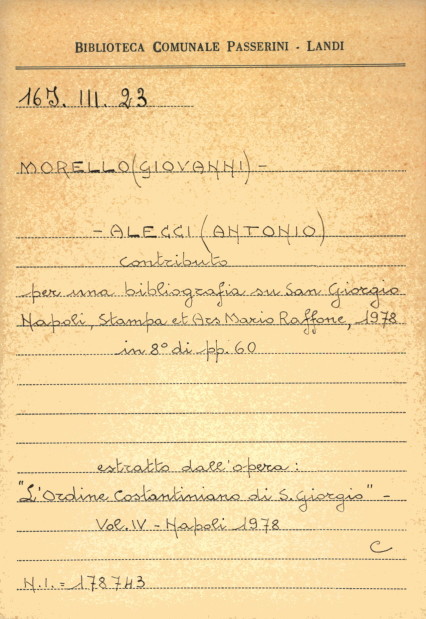 BIBLIOTECA COMUNALE PASSERINI - LANDI
16J. III. 23
MORELLO (GIOVANNI) -
- ALEGGI (ANTONIO)
contributo
per una bibliografia su San Giorgio
Napoli, Stampa et Ars Mario Raffone, 1978
in 8° di pp. 60
estratto dall'opera:
"L'Ordine Costantiniano di S. Giorgio" -
Vol. IV - Napoli 1978
C
N.I. = 178743